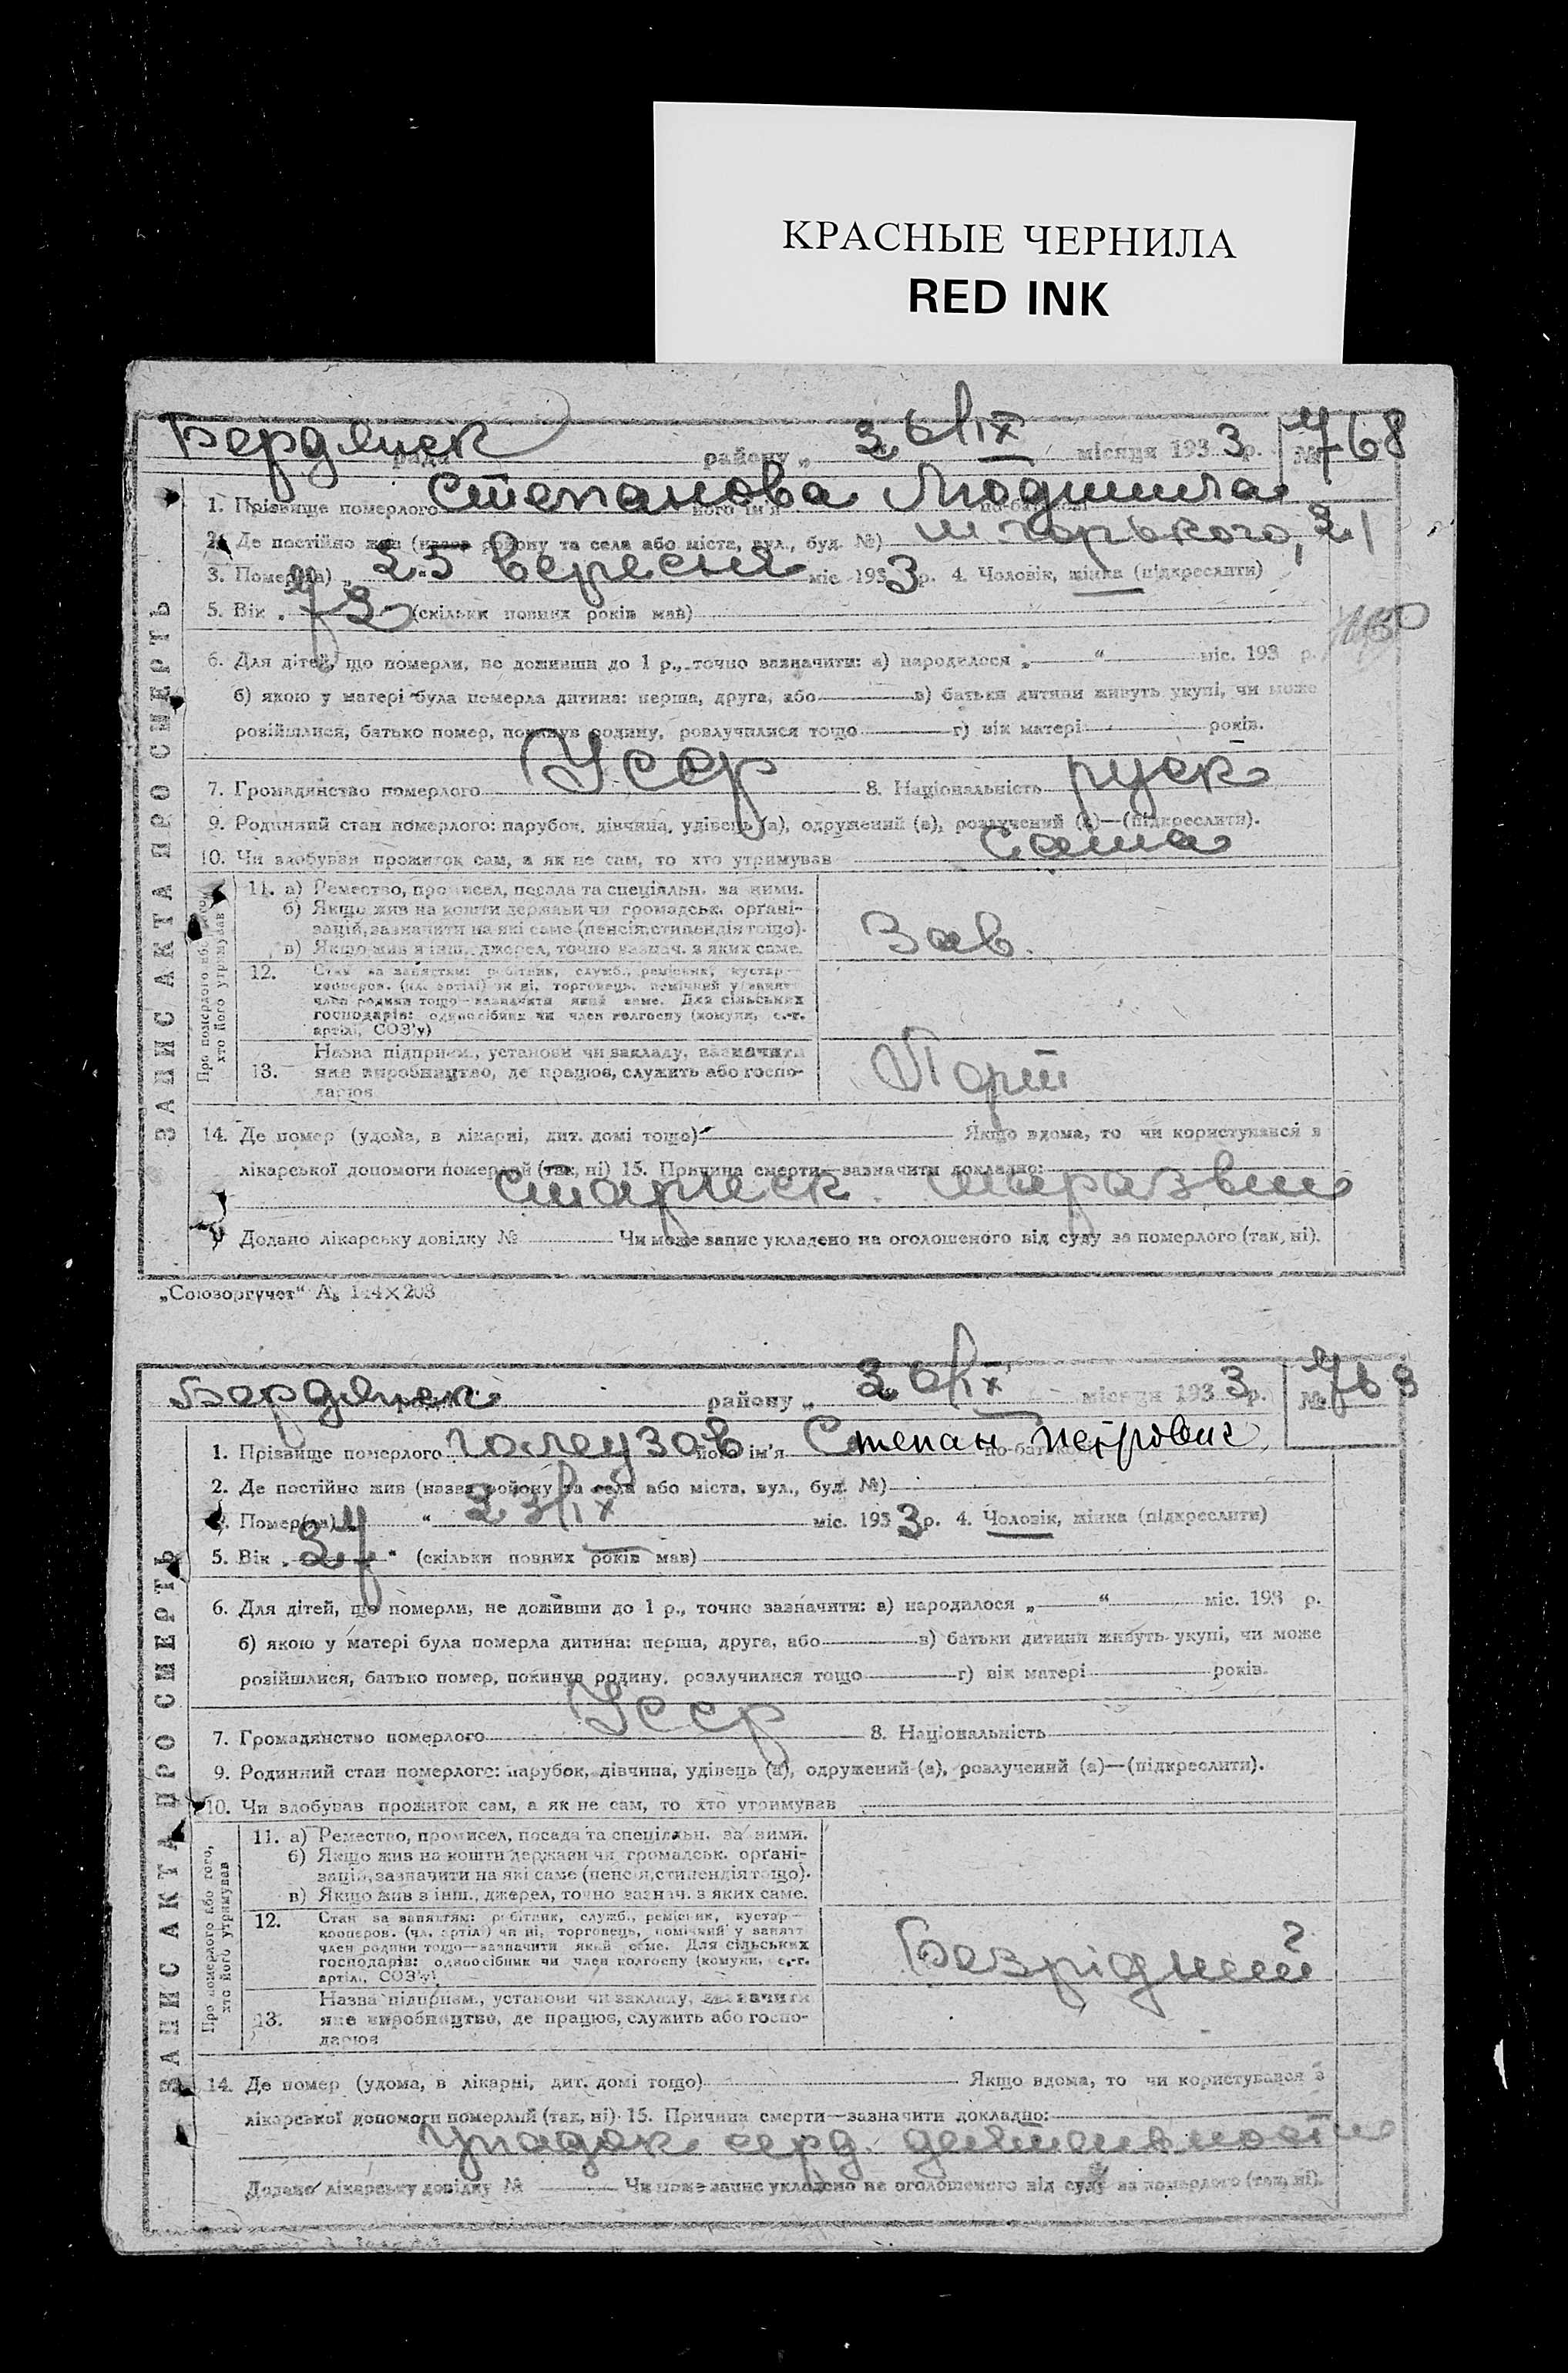 КРАСНЫЕ ЧЕРНИЛА
RED INK
Бердянск ради району „ 26/IX місяця 1933 р. № 768
ЗАПИС АКТА ПРО СМЕРТЬ
1. Прізвище померлого Степанова його ім'я Людмила по-батькові
2. Де постійно жив (назва району та села або міста, вул., буд. №) Горького, 21
3. Помер(ла) „ 25 “ вересня міс. 1933 р. 4. Чоловік, жінка (підкреслити)
5. Вік „ (скільки повних років мав)
6. Для дітей, що померли, не доживши до 1 р., точно зазначити: а) народилося „ “ міс. 193 р.
б) якою у матері була померла дитина: перша, друга, або в) батьки дитини живуть укупі, чи може
розійшлися, батько помер, покинув родину, розлучилися тощо г) вік матері років.
7. Громадянство померлого УССР 8. Національність руск
9. Родинний стан померлого: парубок, дівчина, удівець (а), одружений (а), розлучений (а)—(підкреслити).
10. Чи здобував прожиток сам, а як не сам, то хто утримував сама
Про померлого або того, хто його утримував
11. а) Ремество, промисел, посада та спеціяльн. за ними.
б) Якщо жив на кошти держави чи громадськ. орґані-
зацій, зазначити на які саме (пенсія, стипендія тощо).
в) Якщо жив з інш. джерел, точно зазнач. з яких саме.
Зав.
12. Стан за заняттям: робітник, служб., ремісник, кустар—
кооперов. (чл. артілі) чи ні, торговець, помічний у занятт
член родини тощо—зазначити який саме. Для сільських
господарів: одноосібник чи член колгоспу (комуни, с.-г.
артілі, СОЗ'у)
13. Назва підприєм., установи чи закладу, зазначити
яке виробництво, де працює, служить або госпо-
дарює
Порт
14. Де помер (удома, в лікарні, дит. домі тощо) Якщо вдома, то чи користувався з
лікарської допомоги померлий (так, ні) 15. Причина смерти—зазначити докладно:
Старческ. маразвм
Додано лікарську довідку № Чи може запис укладено на оголошеного від суду за померлого (так, ні).
„Союзоргучет“ А₆ 144×203
Бердянск району „ 26/IX місяця 1933 р. № 769
ЗАПИС АКТА ПРО СМЕРТЬ
1. Прізвище померлого Галеузов його ім'я Степан по-батькові Петрович
2. Де постійно жив (назва району та села або міста, вул., буд. №)
3. Помер(ла) „ “ 23/IX міс. 1933 р. 4. Чоловік, жінка (підкреслити)
5. Вік „ 27 “ (скільки повних років мав)
6. Для дітей, що померли, не доживши до 1 р., точно зазначити: а) народилося „ “ міс. 193 р.
б) якою у матері була померла дитина: перша, друга, або в) батьки дитини живуть укупі, чи може
розійшлися, батько помер, покинув родину, розлучилися тощо г) вік матері років.
7. Громадянство померлого УССР 8. Національність
9. Родинний стан померлого: парубок, дівчина, удівець (а), одружений (а), розлучений (а)—(підкреслити).
10. Чи здобував прожиток сам, а як не сам, то хто утримував
Про померлого або того, хто його утримував
11. а) Ремество, промисел, посада та спеціяльн. за ними.
б) Якщо жив на кошти держави чи громадськ. орґані-
зацій, зазначити на які саме (пенсія, стипендія тощо).
в) Якщо жив з інш. джерел, точно зазнач. з яких саме.
12. Стан за заняттям: робітник, служб., ремісник, кустар—
кооперов. (чл. артілі) чи ні, торговець, помічний у занятт
член родини тощо—зазначити який саме. Для сільських
господарів: одноосібник чи член колгоспу (комуни, с.-г.
артілі, СОЗ'у)
Безрідний
13. Назва підприєм., установи чи закладу, зазначити
яке виробництво, де працює, служить або госпо-
дарює
14. Де помер (удома, в лікарні, дит. домі тощо) Якщо вдома, то чи користувався з
лікарської допомоги померлий (так, ні) 15. Причина смерти—зазначити докладно:
Упадок серд. деятельности
Додано лікарську довідку № Чи може запис укладено на оголошеного від суду за померлого (так, ні).